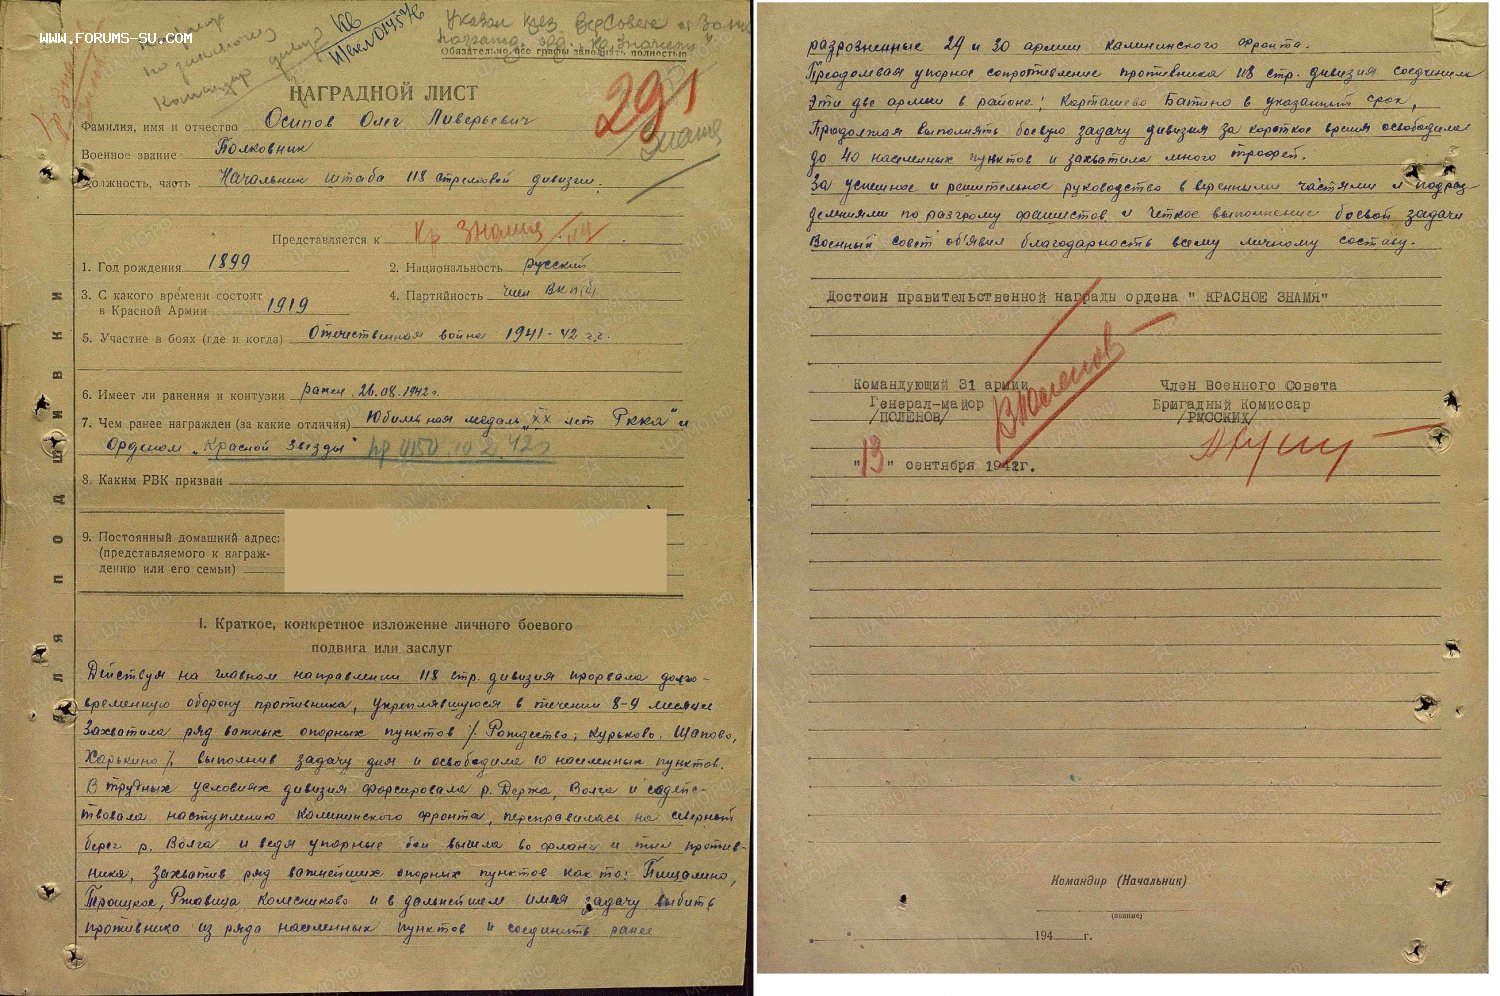 www.FORUMS-SU.com
Обязательно все графы заполнять полностью
291
НАГРАДНОЙ ЛИСТ
Фамилия, имя и отчество Осипов Олег Ливерьевич
Военное звание Полковник
Должность, часть Начальник штаба 118 стрелковой дивизии.
Знамя
Представляется к Кр Знамя
1. Год рождения 1899
2. Национальность русский
3. С какого времени состоит
в Красной Армии 1919
4. Партийность член ВКП(б)
5. Участие в боях (где и когда) Отечественная война 1941-42 г.г.
6. Имеет ли ранения и контузии ранен 26.08.1942г
7. Чем ранее награжден (за какие отличия) Юбилейная медаль „XX лет РККА" и
Орденом „Красной звезды"
8. Каким РВК призван
9. Постоянный домашний адрес:
(представляемого к награж-
дению или его семьи)
ДЛЯ ПОДШИВКИ
I. Краткое, конкретное изложение личного боевого
подвига или заслуг
Действуя на главном направлении 118 стр. дивизия прорвала долго-
временную оборону противника, укреплявшуюся в течении 8-9 месяцев
Захватила ряд важных опорных пунктов /. Рождество, Курьково, Щапово,
Харькино /. выполнив задачу дня и освободила 10 населенных пунктов.
В трудных условиях дивизия форсировала р. Держа, Волга и содейс-
твовала наступлению Калининского фронта, переправилась на северный
берег р. Волга и ведя упорные бои вышла во фланг и тыл против-
ника, захватив ряд важнейших опорных пунктов как то: Пищалино,
Троицкое, Ржавица, Колесниково и в дальнейшем имея задачу выбить
противника из ряда населенных пунктов и соединить ранее
разрозненные 29 и 30 армии Калининского фронта.
Преодолевая упорное сопротивление противника 118 стр. дивизия соединила
Эти две армии в районе; Карташево Батино в указанный срок,
Продолжая выполнять боевую задачу дивизия за короткое время освободила
до 40 населенных пунктов и захватила много трофей.
За успешное и решительное руководство вверенными частями и подраз-
делениями по разгрому фашистов и четкое выполнение боевой задачи
Военный совет объявил благодарность всему личному составу.
Достоин правительственной награды ордена " КРАСНОЕ ЗНАМЯ"
Командующий 31 армии
Генерал-майор
/ПОЛЕНОВ/
Член Военного Совета
Бригадный Комиссар
/РУССКИХ/
"13" сентября 1942г.
Командир (Начальник)
(звание)
194 г.